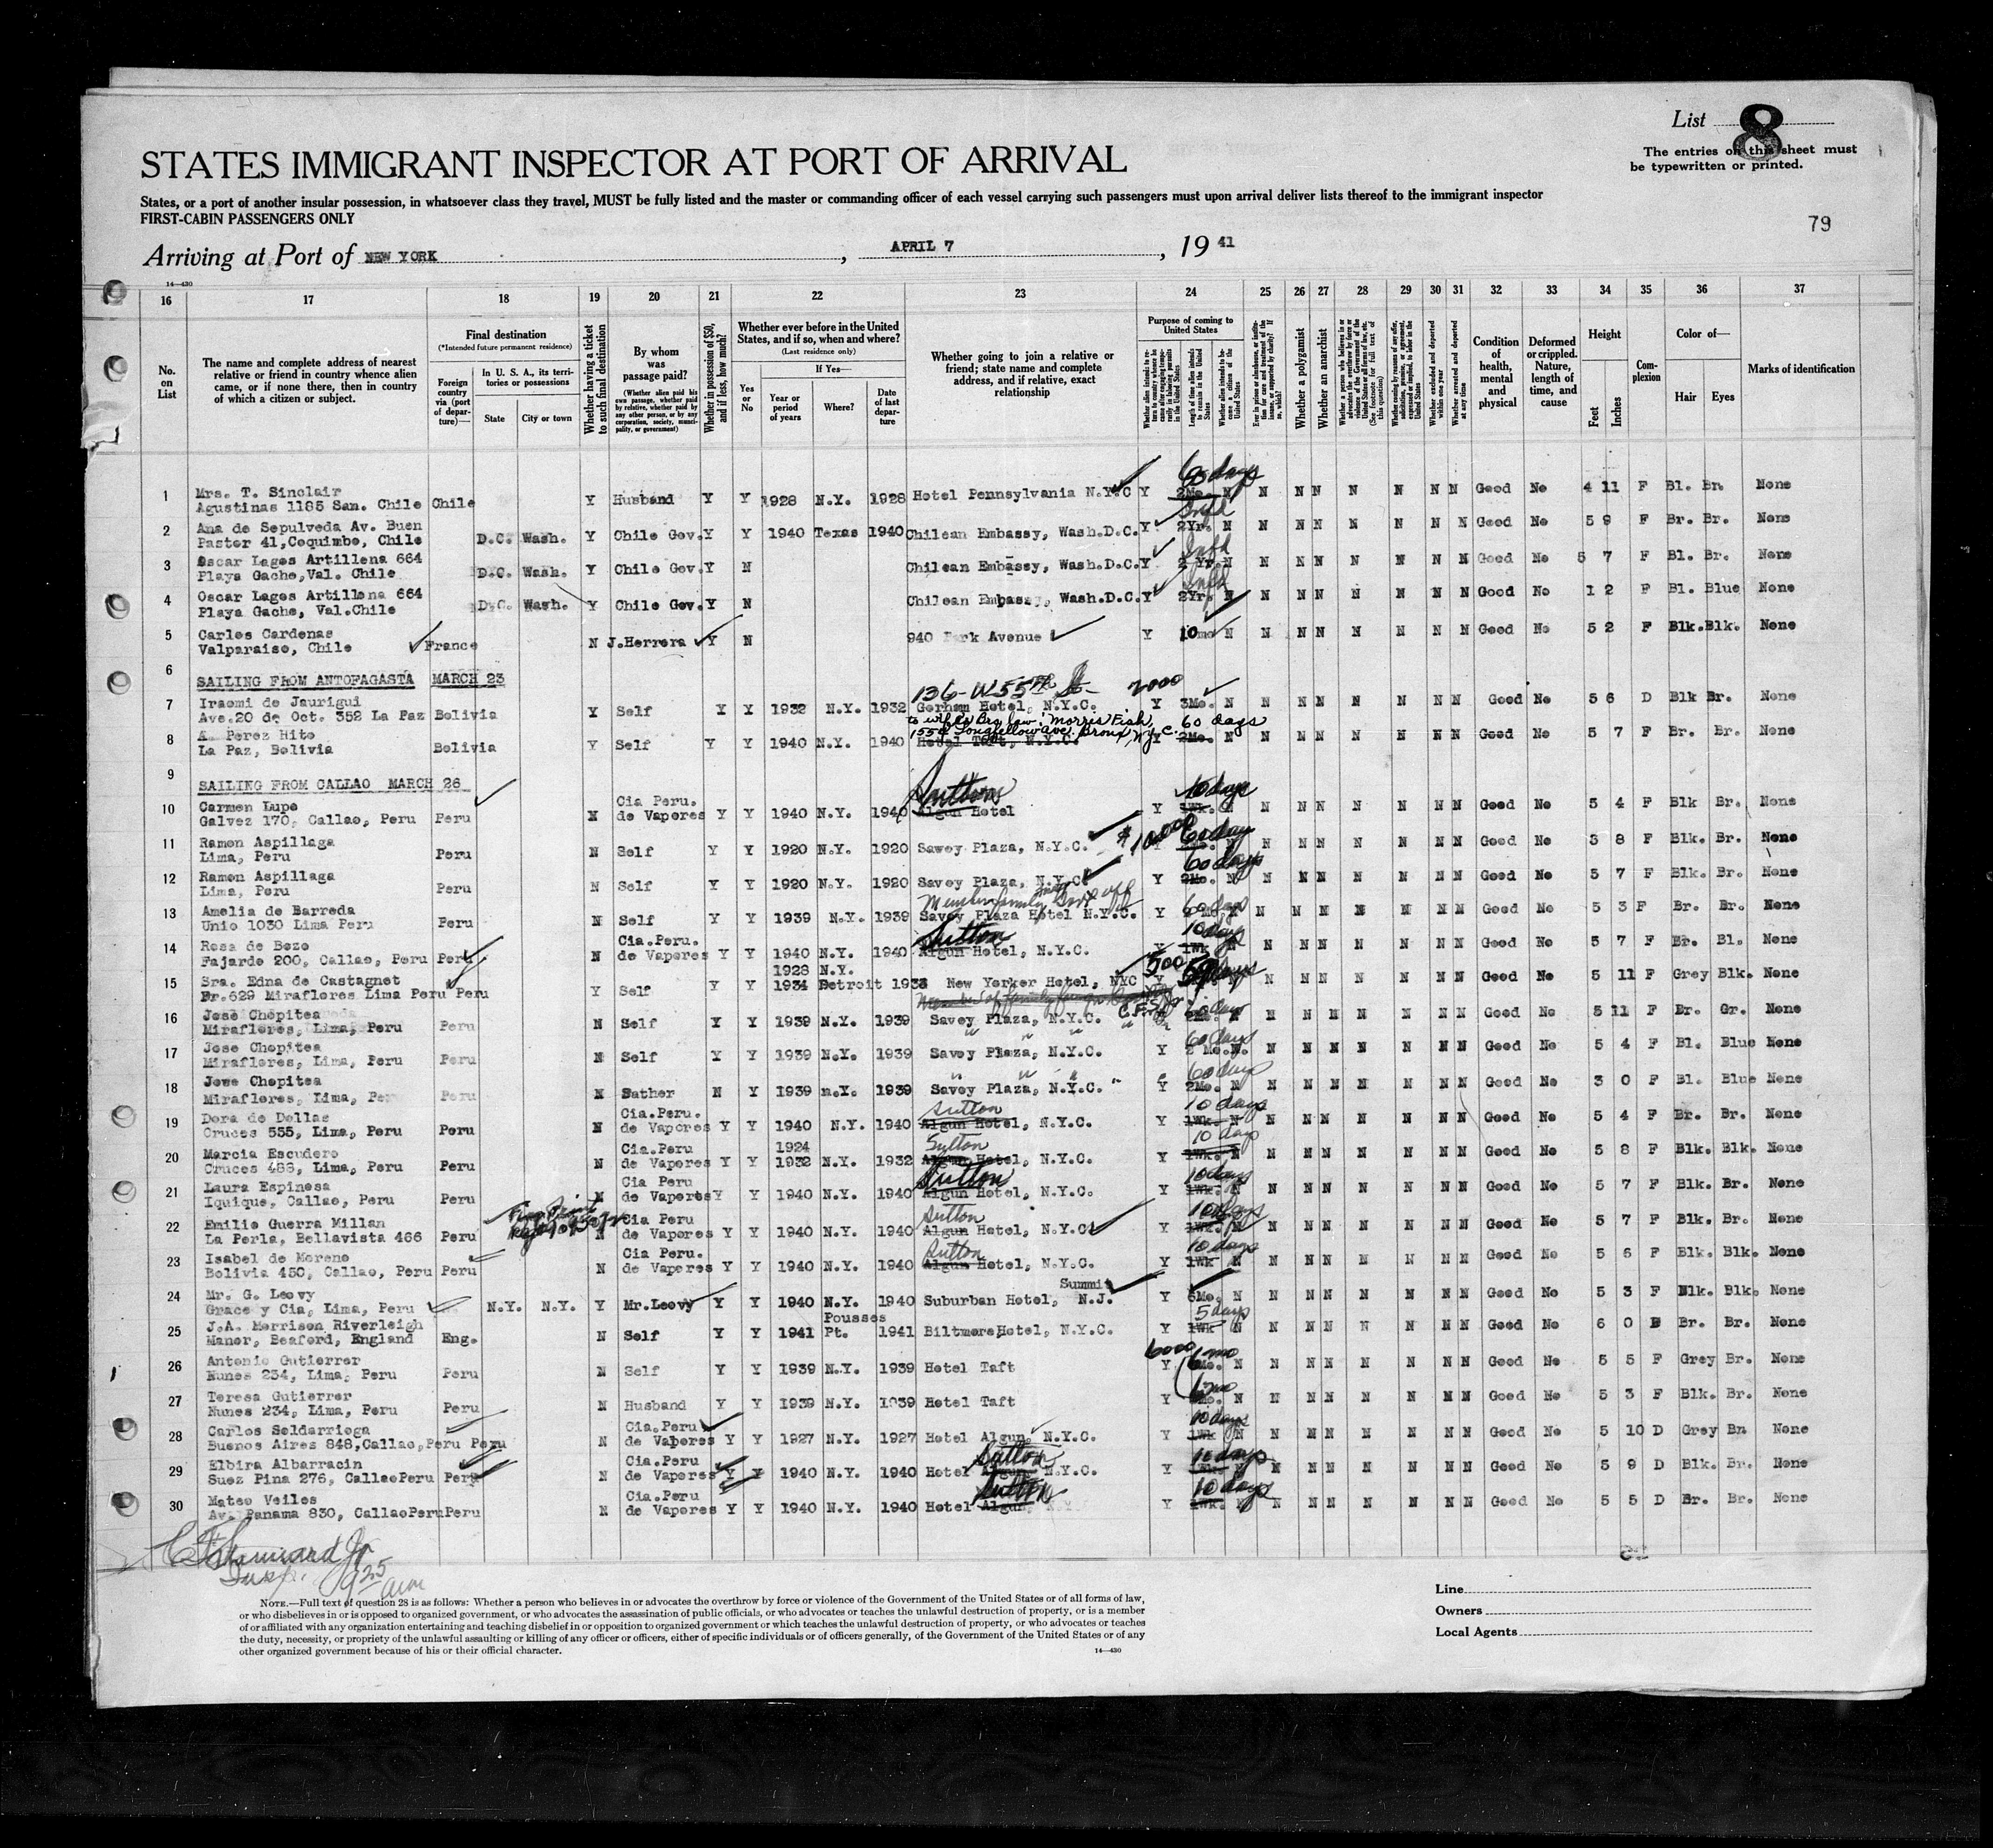 List 8
STATES IMMIGRANT INSPECTOR AT PORT OF ARRIVAL
The entries on this sheet must
be typewritten or printed.
States, or a port of another insular possession, in whatsoever class they travel, MUST be fully listed and the master or commanding officer of each vessel carrying such passengers must upon arrival deliver lists thereof to the immigrant inspector
FIRST-CABIN PASSENGERS ONLY
79
Arriving at Port of NEW YORK, APRIL 7, 19 41
14—430
16 17 18 19 20 21 22 23 24 25 26 27 28 29 30 31 32 33 34 35 36 37
No. on List
The name and complete address of nearest relative or friend in country whence alien came, or if none there, then in country of which a citizen or subject.
Final destination
(*Intended future permanent residence)
Foreign country via (port of departure)—
In U. S. A., its territories or possessions
State City or town
Whether having a ticket to such final destination
By whom was passage paid?
(Whether alien paid his own passage, whether paid by relative, whether paid by any other person, or by any corporation, society, municipality, or government)
Whether in possession of $50, and if less, how much?
Whether ever before in the United States, and if so, when and where?
(Last residence only)
Yes or No
If Yes—
Year or period of years Where? Date of last departure
Whether going to join a relative or friend; state name and complete address, and if relative, exact relationship
Purpose of coming to United States
Length of time alien intends to remain in the United States
Whether alien intends to become a citizen of the United States
Whether a polygamist
Whether an anarchist
Whether excluded and deported within one year
Whether arrested and deported at any time
Condition of health, mental and physical
Deformed or crippled. Nature, length of time, and cause
Height
Feet Inches
Complexion
Color of—
Hair Eyes
Marks of identification
60 days
1 Mrs. T. Sinclair
Agustinas 1185 San. Chile Chile Y Husband Y Y 1928 N.Y. 1928 Hotel Pennsylvania N.Y.C Y 2Mo. N N N N N N N N Good No 4 11 F Bl. Br. None
2 Ana de Sepulveda Av. Buen
Pastor 41,Coquimbo, Chile D.C. Wash. Y Chile Gov. Y Y 1940 Texas 1940 Chilean Embassy, Wash.D.C. Y 2Yr. N N N N N N N N Good No 5 9 F Br. Br. None
3 Oscar Lagos Artillena 664
Playa Gache,Val. Chile D.C. Wash. Y Chile Gov. Y N Chilean Embassy, Wash.D.C. Y 2 Yr. N N N N N N N N Good No 5 7 F Bl. Br. None
4 Oscar Lagos Artillena 664
Playa Gache, Val.Chile D.C. Wash. Y Chile Gov. Y N Chilean Embassy, Wash.D.C. Y 2Yr. N N N N N N N N Good No 1 2 F Bl. Blue None
5 Carlos Cardenas
Valparaiso, Chile France N J.Herrera Y N 940 Park Avenue Y 10mo N N N N N N N N Good No 5 2 F Blk. Blk. None
6 SAILING FROM ANTOFAGASTA MARCH 23
136-W 55th St- 2000
7 Iraomi de Jaurigui
Ave.20 de Oct. 352 La Paz Bolivia Y Self Y Y 1932 N.Y. 1932 Gorham Hotel, N.Y.C. Y 3Mo. N N N N N N N N Good No 5 6 D Blk Br. None
Morris Fish, 60 days
Longfellow Ave. Bronx, N.Y.C.
8 A. Perez Hito
La Paz, Bolivia Bolivia Y Self Y Y 1940 N.Y. 1940 Hotel Taft, N.Y.C. Y 2Mo. N N N N N N N N Good No 5 7 F Br. Br. None
9 SAILING FROM CALLAO MARCH 26
Sutton 10 days
10 Carmen Lupo Cia Peru.
Galvez 170, Callao, Peru Peru N de Vapores Y Y 1940 N.Y. 1940 Algun Hotel Y 1Wk. N N N N N N N Good No 5 4 F Blk Br. None
$10000 60 day
11 Ramon Aspillaga
Lima, Peru Peru N Self Y Y 1920 N.Y. 1920 Savoy Plaza, N.Y.C. N N N N N N N Good No 5 8 F Blk. Br. None
60 days
12 Ramon Aspillaga
Lima, Peru Peru N Self Y Y 1920 N.Y. 1920 Savoy Plaza, N.Y.C Y 2Mo. N N N N N N N N Good No 5 7 F Blk. Br. None
60 days
13 Amelia de Barreda
Unio 1030 Lima Peru Peru N Self Y Y 1939 N.Y. 1939 Savoy Plaza Hotel N.Y.C. Y 2 Mo. N N N N N N N N Good No 5 3 F Br. Br. None
Sutton 10 days
14 Rosa de Bozo Cia.Peru.
Fajardo 200, Callao, Peru Peru N de Vapores Y Y 1940 N.Y. 1940 Algun Hotel, N.Y.C. Y 1Wk N N N N N N N N Good No 5 7 F Br. Bl. None
1928 N.Y. 500
15 Sra. Edna de Castagnet
Fr.629 Miraflores Lima Peru Peru Y Self Y Y 1934 Detroit 1938 New Yorker Hotel, NYC Y N N N N N N N Good No 5 11 F Grey Blk. None
60 days
16 Jose Chopitea
Miraflores, Lima, Peru Peru N Self Y Y 1939 N.Y. 1939 Savoy Plaza, N.Y.C. N N N N N N N Good No 5 11 F Br. Gr. None
60 days
17 Jose Chopitea
Miraflores, Lima, Peru Peru N Self Y Y 1939 N.Y. 1939 Savoy Plaza, N.Y.C. Y 2 Mo. N N N N N N N N Good No 5 4 F Bl. Blue None
60 days
18 Jose Chopitea
Miraflores, Lima, Peru Peru N Sather N Y 1939 n.Y. 1939 Savoy Plaza, N.Y.C. Y 2Mo. N N N N N N N N Good No 3 0 F Bl. Blue None
Sutton 10 days
19 Dora de Dellas Cia.Peru.
Cruces 555, Lima, Peru Peru N de Vapores Y Y 1940 N.Y. 1940 Algun Hotel, N.Y.C. Y 1Wk. N N N N N N N N Good No 5 4 F Br. Br. None
1924 Sutton 10 day
20 Marcia Escudero Cia.Peru
Cruces 488, Lima, Peru Peru N de Vapores Y Y 1932 N.Y. 1932 Algun Hotel, N.Y.C. Y 1Wk. N N N N N N N N Good No 5 8 F Blk. Blk. None
Sutton 10 days
21 Laura Espinosa Cia Peru
Iquique, Callao, Peru Peru N de Vapores Y Y 1940 N.Y. 1940 Algun Hotel, N.Y.C. Y 1Wk. N N N N N N N N Good No 5 7 F Blk. Br. None
Sutton 10 days
22 Emilio Guerra Millan Cia Peru
La Perla, Bellavista 466 Peru N de Vapores Y Y 1940 N.Y. 1940 Algun Hotel, N.Y.C Y 1Wk. N N N N N N N N Good No 5 7 F Blk. Br. None
Sutton 10 days
23 Isabel de Moreno Cia Peru.
Bolivia 450, Callao, Peru Peru N de Vapores Y Y 1940 N.Y. 1940 Algun Hotel, N.Y.C. Y 1Wk N N N N N N N N Good No 5 6 F Blk. Blk. None
Summit
24 Mr. G. Leovy
Grace y Cia, Lima, Peru N.Y. N.Y. Y Mr.Leovy Y Y 1940 N.Y. 1940 Suburban Hotel, N.J. Y 6Mo. N N N N N N N N Good No 5 3 F Blk. Blk. None
Pousses 5 days
25 J.A. Morrison Riverleigh
Manor, Beaford, England Eng. N Self Y Y 1941 Pt. 1941 Biltmore Hotel, N.Y.C. Y 1Wk N N N N N N N N Good No 6 0 Br. Br. None
6000 1 mo
26 Antonio Gutierrer
Nunes 234, Lima, Peru Peru N Self Y Y 1939 N.Y. 1939 Hotel Taft Y N N N N N N N N Good No 5 5 F Grey Br. None
27 Teresa Gutierrer
Nunes 234, Lima, Peru Peru N Husband Y Y 1939 N.Y. 1939 Hotel Taft Y N N N N N N N N Good No 5 3 F Blk. Br. None
10 days
28 Carlos Soldarriega Cia.Peru
Buenos Aires 848,Callao,Peru Peru N de Vapores Y Y 1927 N.Y. 1927 Hotel Algun, N.Y.C. Y 1Wk N N N N N N N N Good No 5 10 D Grey Bn None
Sutton 10 days
29 Elbira Albarracin Cia.Peru
Suez Pina 276, CallaoPeru Peru N de Vapores Y Y 1940 N.Y. 1940 Hotel Algun, N.Y.C. Y 1Wk. N N N N N N N N Good No 5 9 D Blk. Br. None
Sutton 10 days
30 Mateo Veiles Cia.Peru
Av. Panama 830, CallaoPeru Peru N de Vapores Y Y 1940 N.Y. 1940 Hotel Algun, Y 1Wk. N N N N N N N N Good No 5 5 D Br. Br. None
Insp. 9 25 am
NOTE.—Full text of question 28 is as follows: Whether a person who believes in or advocates the overthrow by force or violence of the Government of the United States or of all forms of law,
or who disbelieves in or is opposed to organized government, or who advocates the assassination of public officials, or who advocates or teaches the unlawful destruction of property, or is a member
of or affiliated with any organization entertaining and teaching disbelief in or opposition to organized government or which teaches the unlawful destruction of property, or who advocates or teaches
the duty, necessity, or propriety of the unlawful assaulting or killing of any officer or officers, either of specific individuals or of officers generally, of the Government of the United States or of any
other organized government because of his or their official character.
14—430
Line
Owners
Local Agents